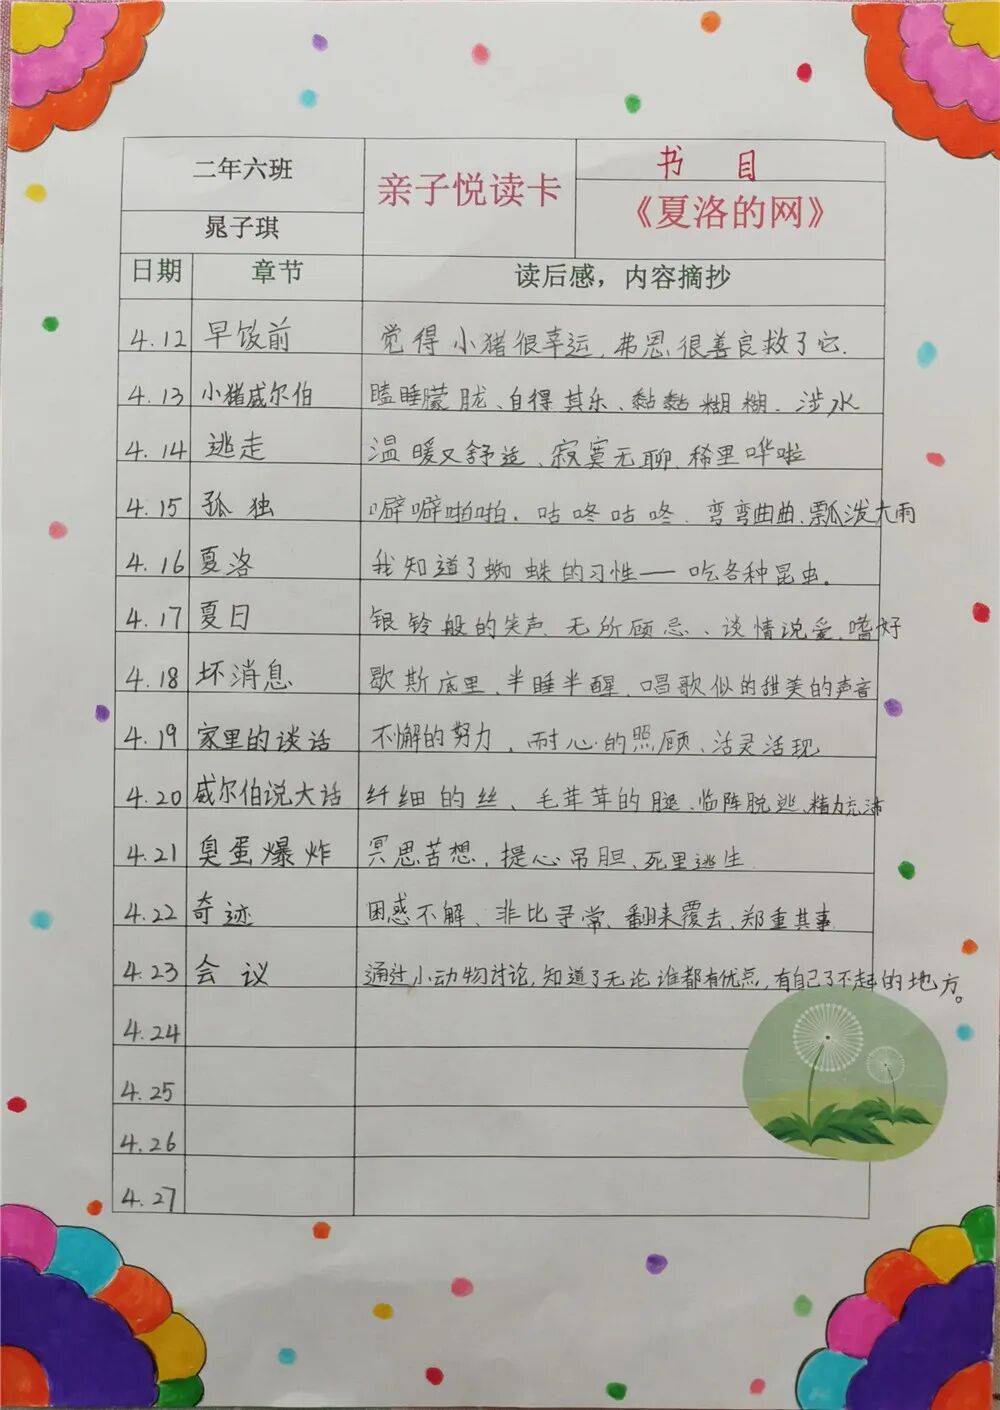 二年六班
亲子悦读卡
书 目
晁子琪
《夏洛的网》
日期 章节 读后感，内容摘抄
4.12 早饭前 觉得小猪很幸运,弗恩很善良救了它.
4.13 小猪威尔伯 瞌睡朦胧、自得其乐、黏黏糊糊、涉水
4.14 逃走 温暖又舒适、寂寞无聊、稀里哗啦
4.15 孤独 噼噼啪啪、咕咚咕咚、弯弯曲曲、瓢泼大雨
4.16 夏洛 我知道了蜘蛛的习性——吃各种昆虫。
4.17 夏日 银铃般的笑声、无所顾忌、谈情说爱、嗜好
4.18 坏消息 歇斯底里、半睡半醒、唱歌似的甜美的声音
4.19 家里的谈话 不懈的努力、耐心的照顾、活灵活现
4.20 威尔伯说大话 纤细的丝、毛茸茸的腿、临阵脱逃、精力充沛
4.21 臭蛋爆炸 冥思苦想、提心吊胆、死里逃生
4.22 奇迹 困惑不解、非比寻常、翻来覆去、郑重其事
4.23 会议 通过小动物讨论,知道了无论谁都有优点,有自己了不起的地方。
4.24
4.25
4.26
4.27